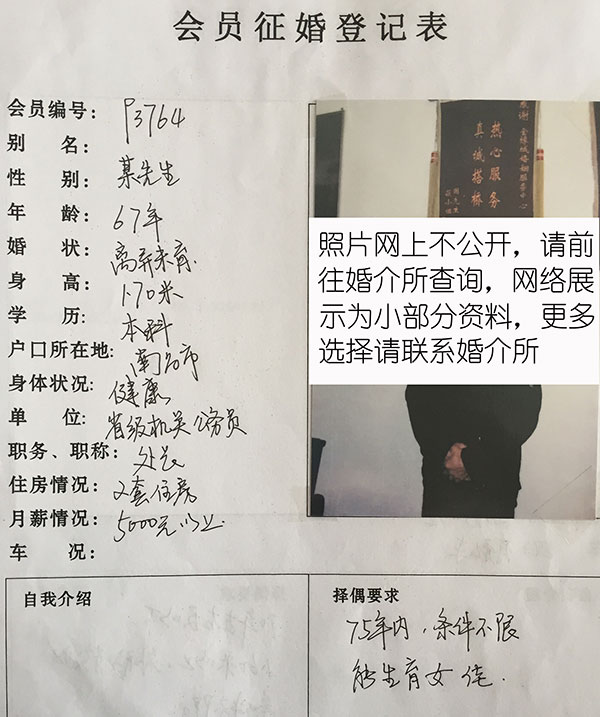 会员征婚登记表
会员编号：P3764
别 名：
性 别：某先生
年 龄：67年
婚 状：离异未育
身 高：1.70米
学 历：本科
户口所在地：南昌市
身体状况：健康
单 位：省级机关公务员
职务、职称：处长
住房情况：2套住房
月薪情况：5000元以上
车 况：
热心服务
真诚搭桥
照片网上不公开，请前
往婚介所查询，网络展
示为小部分资料，更多
选择请联系婚介所
自我介绍
择偶要求
75年内，条件不限
能生育女佳．